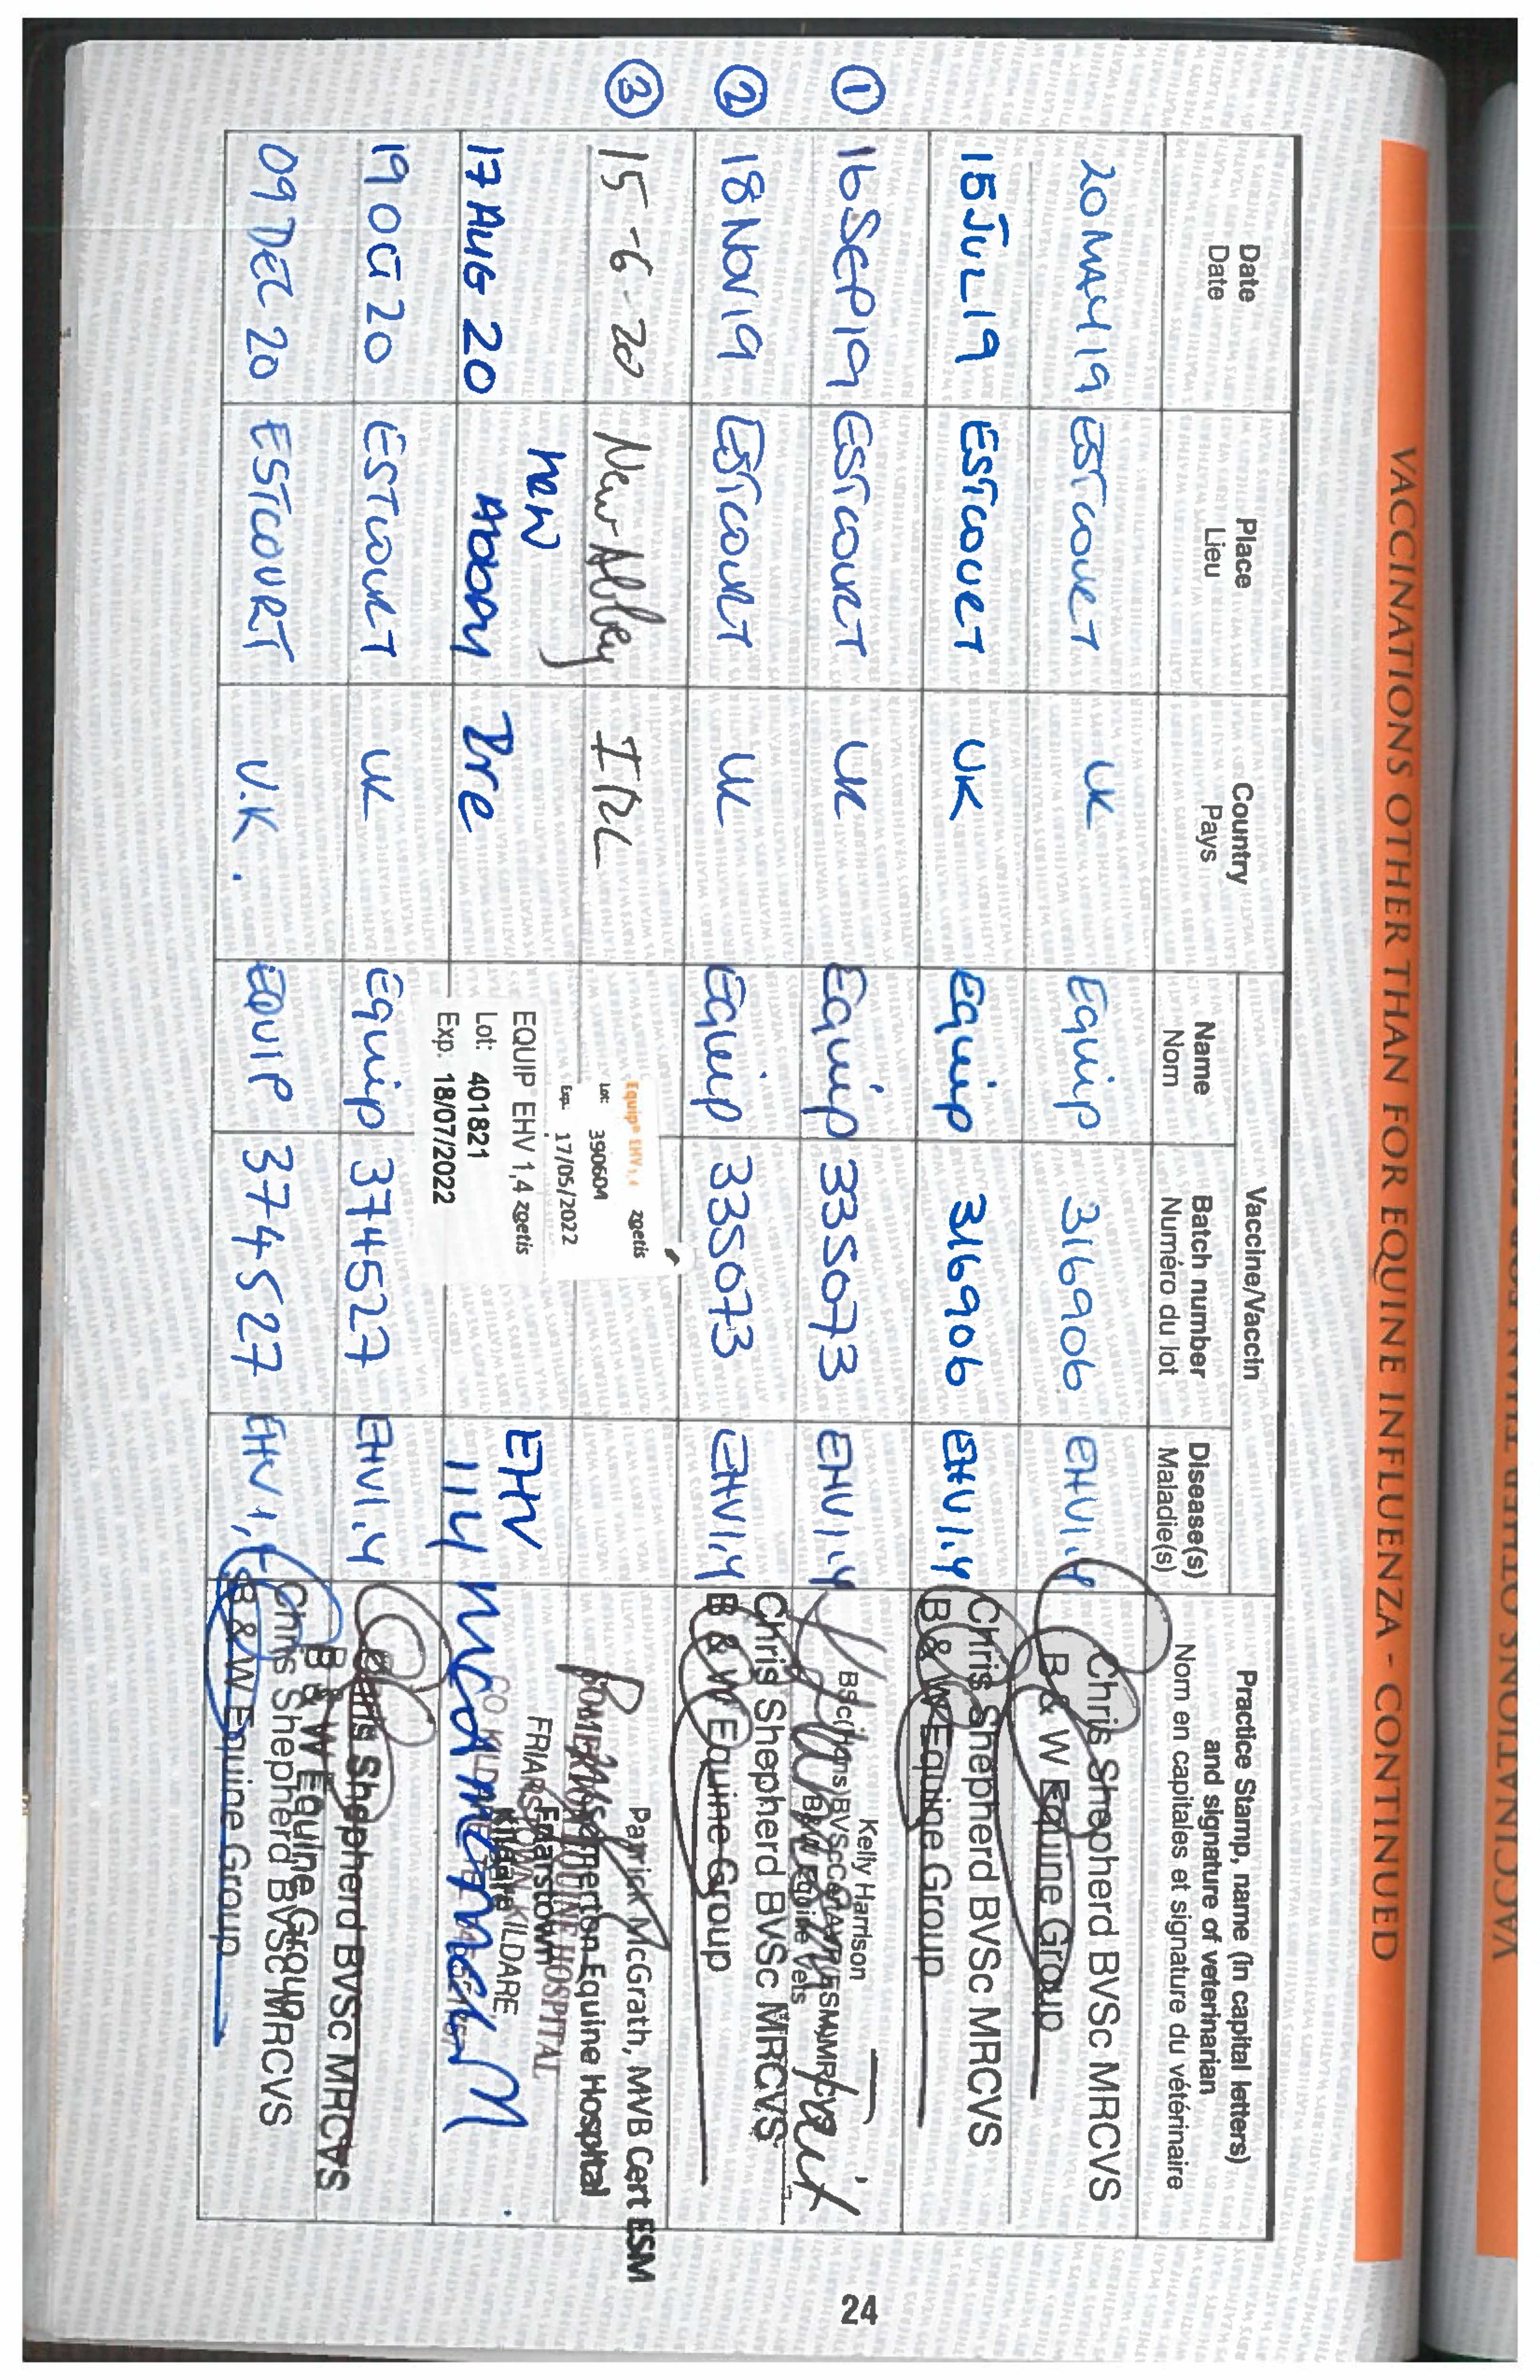 VACCINATIONS OTHER THAN FOR EQUINE INFLUENZA - CONTINUED
Date
Date
Place
Lieu
Country
Pays
Vaccine/Vaccin
Name
Nom
Batch number
Numéro du lot
Disease(s)
Maladie(s)
Practice Stamp, name (in capital letters)
and signature of veterinarian
Nom en capitales et signature du vétérinaire
20 MAY 19 ESTCOURT UK Equip 316906 EHV1,4
Chris Shepherd BVSc MRCVS
B & W Equine Group
15 JUL 19 ESTCOURT UK Equip 316906 EHV1,4
Chris Shepherd BVSc MRCVS
B & W Equine Group
① 16 SEP 19 ESTCOURT UK Equip 335073 EHV1,4
Kelly Harrison
② 18 NOV 19 ESTCOURT UK Equip 335073 EHV1,4
Chris Shepherd BVSc MRCVS
B & W Equine Group
③ 15-6-20 New Abbey IRL
Equip® EHV1,4 zoetis
Lot: 390604
Exp. 17/05/2022
Patrick McGrath, MVB Cert ESM
Somerton Equine Hospital
Friarstown
Kildare
17 AUG 20 New Abbey Ire
EQUIP EHV 1,4 zoetis
Lot: 401821
Exp. 18/07/2022
EHV
1,4
EQUINE HOSPITAL
FRIARSTOWN
CO KILDARE
19 OCT 20 ESTCOURT UK Equip 374527 EHV1,4
Chris Shepherd BVSc MRCVS
B & W Equine Group
09 DEC 20 ESTCOURT U.K. EQUIP 374527 EHV1,4
Chris Shepherd BVSc MRCVS
B & W Equine Group
24